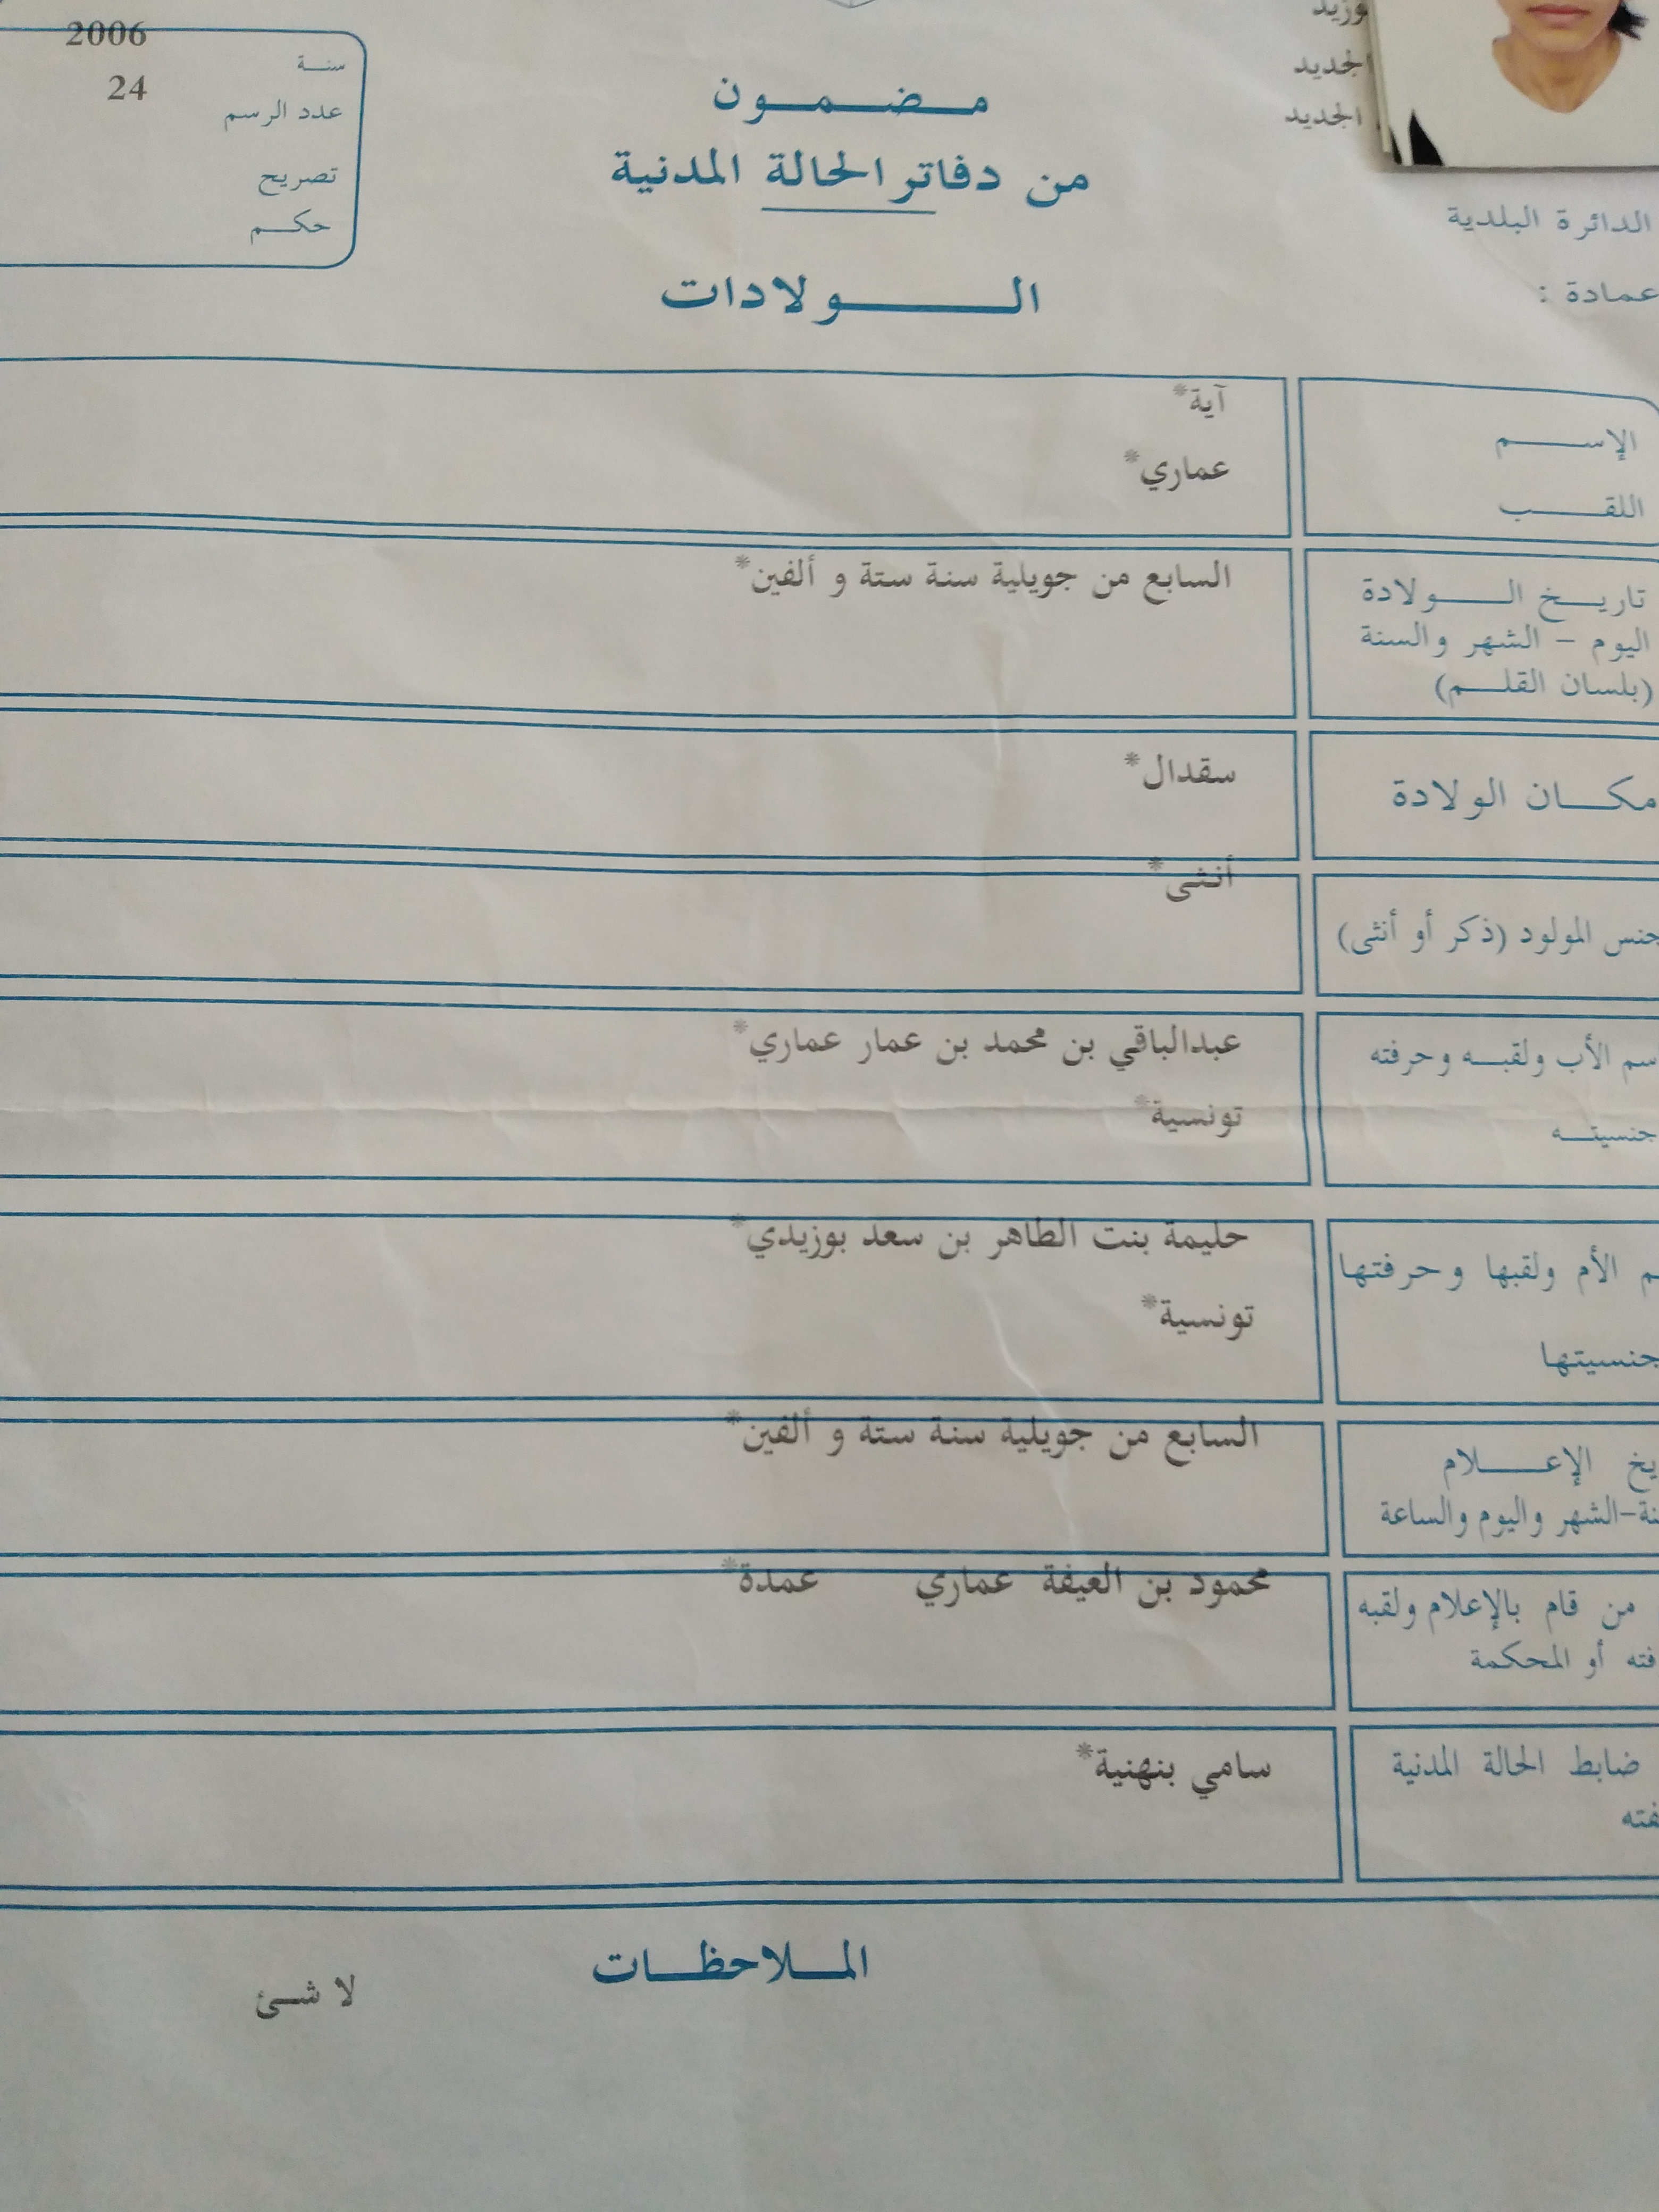 الجديد
الجديد
2006
سنة
24
عدد الرسم
تصريح
حكم
مضمون
من دفاتر الحالة المدنية
الولادات
الدائرة البلدية
عمادة :
الإسم آية*
اللقب عماري*
تاريخ الولادة السابع من جويلية سنة ستة و ألفين*
اليوم - الشهر والسنة
(بلسان القلم)
مكان الولادة سقدال*
جنس المولود (ذكر أو أنثى) أنثى*
الأب ولقبه وحرفته عبدالباقي بن محمد بن عمار عماري*
جنسيته تونسية*
الأم ولقبها وحرفتها حليمة بنت الطاهر بن سعد بوزيدي*
جنسيتها تونسية*
الإعلام السابع من جويلية سنة ستة و ألفين*
الشهر واليوم والساعة
من قام بالإعلام ولقبه محمود بن العيفة عماري عمدة*
أو المحكمة
ضابط الحالة المدنية سامي بنهنية*
الملاحظات
لا شئ